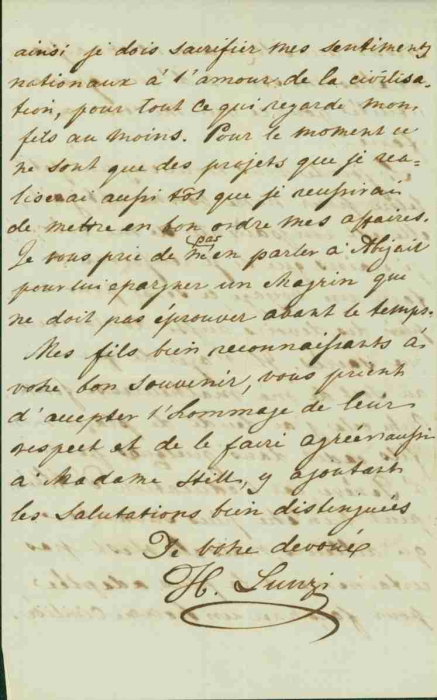 ainsi je dois sacrifier mes sentiments
nationaux à l'amour de la civilisa-
tion, pour tout ce qui regarde mon
fils au moins. Pour le moment ce
ne sont que des projets que je rea-
liserai aussi tôt que je reussirai
de mettre en bon ordre mes affaires.
Je vous prie de
pas
m'en parler à
pour lui epargner un chagrin que
ne doit pas éprouver avant le temps.
Mes fils bien reconnaissants à
votre bon souvenir, vous prient
d'accepter l'hommage de leur
respect et de le faire agréer aussi
à Madame Still, y ajoutant
les salutations bien distinguées
De votre devoué
H. Lunzi